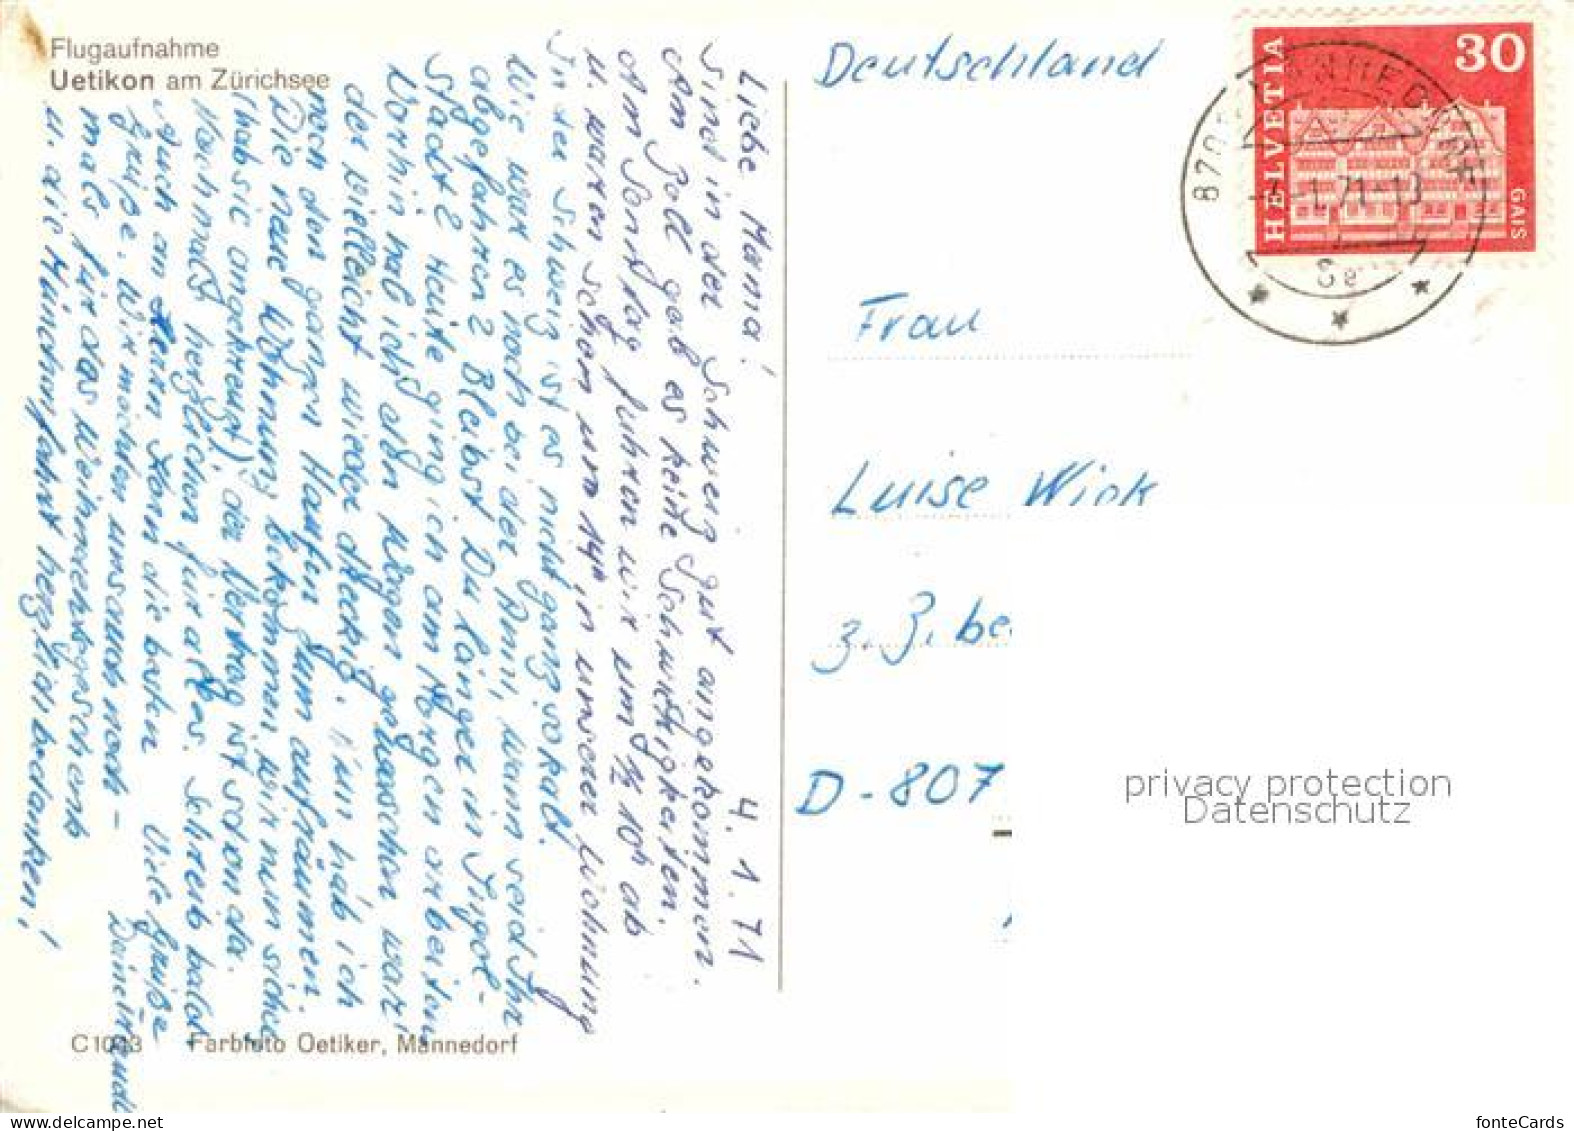 Flugaufnahme
Uetikon am Zürichsee
4.1.71
Liebe Mama!
Sind in der Schweiz gut angekommen.
Am Zoll gab es keine Schwierigkeiten.
Am Sonntag fuhren wir um ½ 10h ab
u. waren schon um 14h in unserer Wohnung
In der Schweiz ist es nicht ganz so kalt.
Wie war es noch bei der Anni, wann seid Ihr
abgefahren? Bleibst Du länger in Ingol-
stadt? Heute ging ich am Morgen arbeiten
Vorhin hab ich den Wagen gewaschen war
der vielleicht wieder dreckig. Nun hab ich
noch den ganzen Haufen zum aufräumen.
Die neue Wohnung bekommen wir nun sicher
(hab sie angekreuzt) der Vertrag ist schon da.
Nochmals herzlichen für alles. Schreib bald
Auch an Herrn Korn die besten
Grüße. Wir möchten uns auch noch-
mals für das Weihnachtsgeschenk
u. die Münchnfahrt herzlich bedanken!
Viele Grüße
Deine Traudl
C1013 Farbfoto Oetiker, Männedorf
Deutschland
HELVETIA
30
GAIS
8708 MÄNNEDORF
Frau
Luise Wick
z. Z. be
D-807
privacy protection
Datenschutz
fonteCards